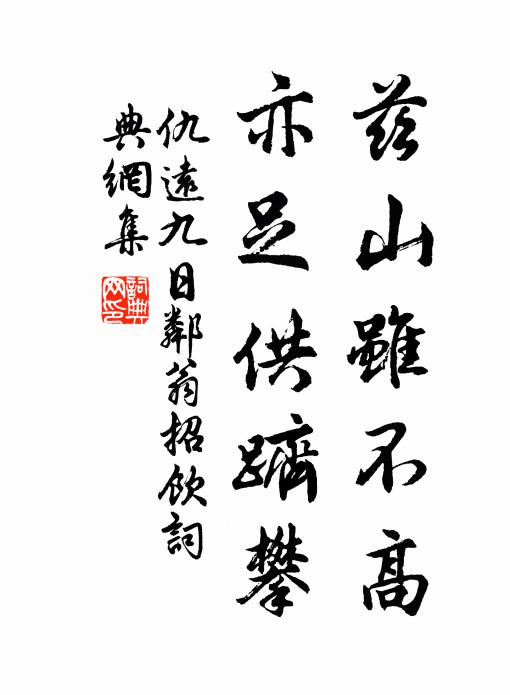 茲山雖不高
亦足供躋攀
仇遠九日鄰翁招飲詞
典網集
詞典
网印